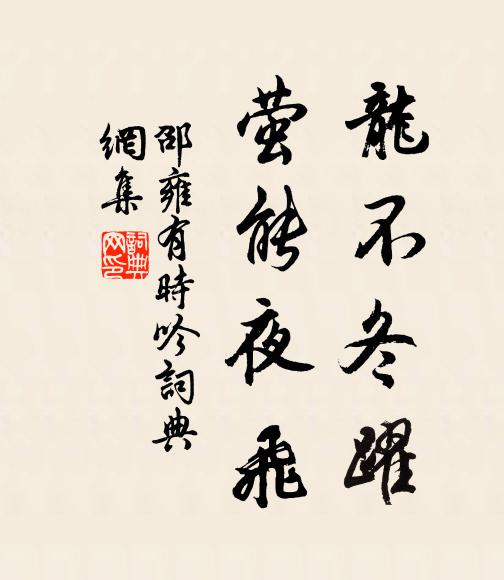 龍不冬躍
螢能夜飛
邵雍有時吟詞典
網集
詞典
网印